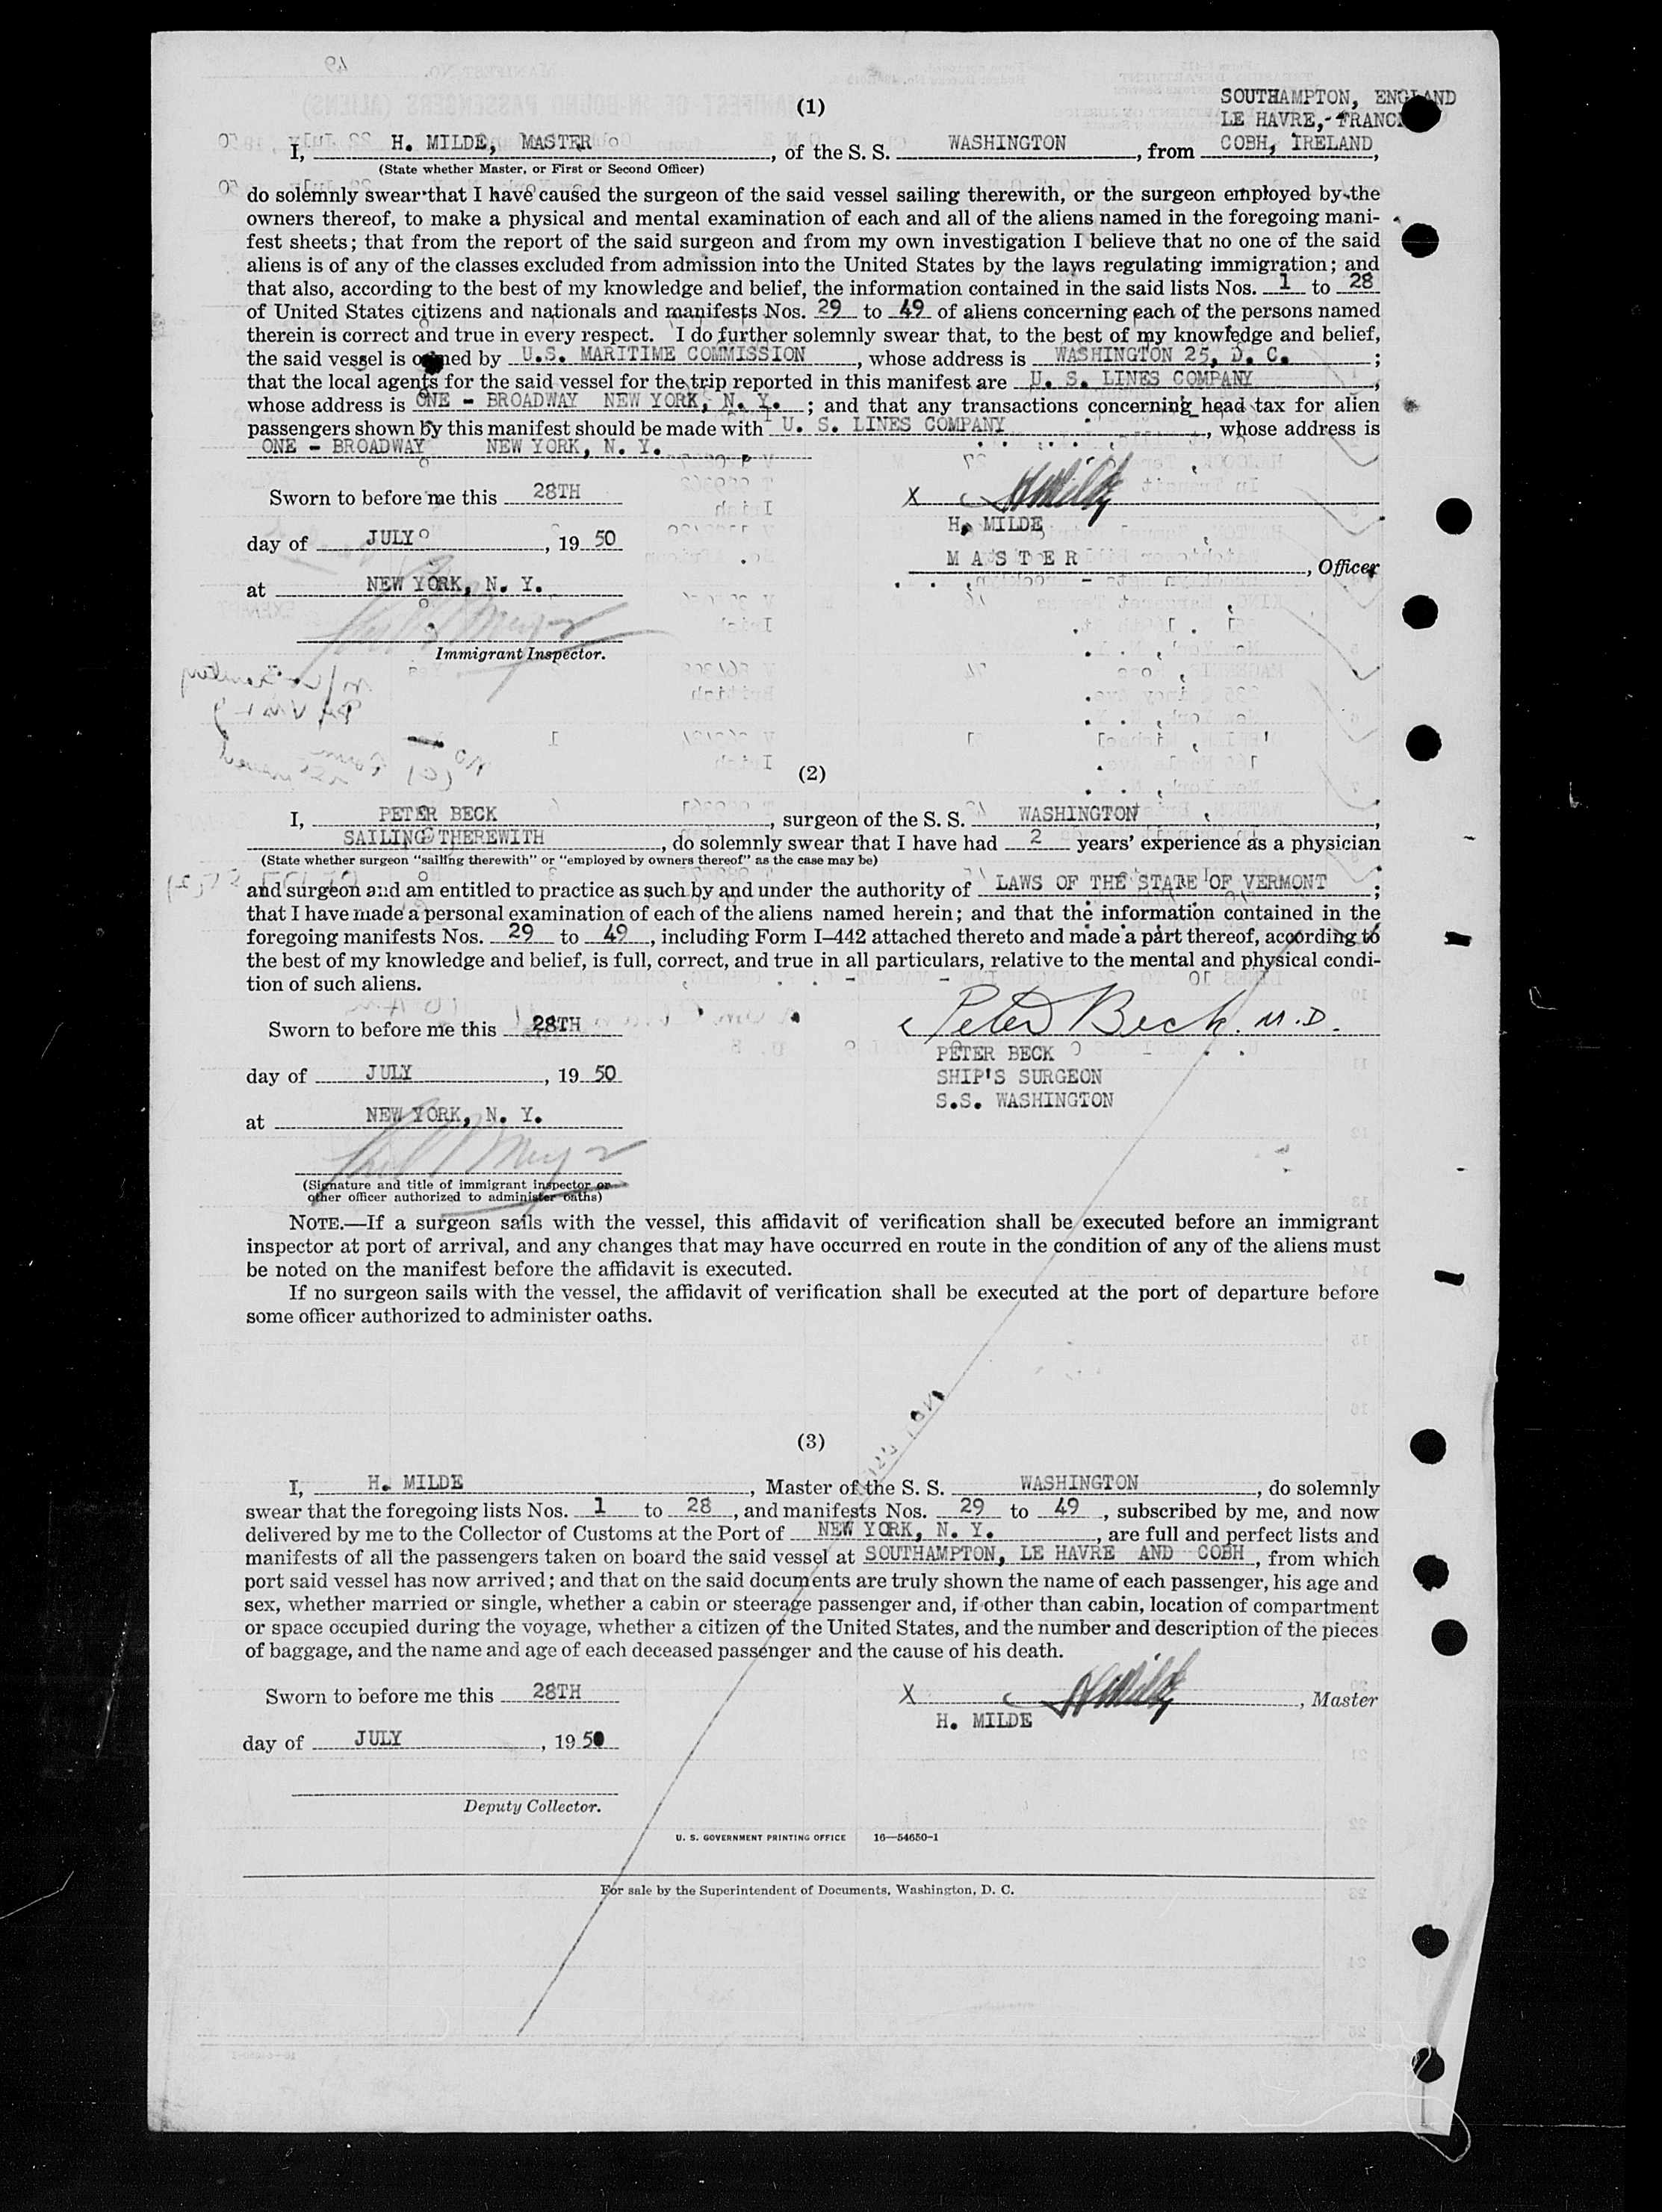 (1)
SOUTHAMPTON, ENGLAND
LE HAVRE,-FRANCE
I, H. MILDE, MASTER, of the S. S. WASHINGTON, from COBH, IRELAND,
(State whether Master, or First or Second Officer)
do solemnly swear that I have caused the surgeon of the said vessel sailing therewith, or the surgeon employed by the
owners thereof, to make a physical and mental examination of each and all of the aliens named in the foregoing mani-
fest sheets; that from the report of the said surgeon and from my own investigation I believe that no one of the said
aliens is of any of the classes excluded from admission into the United States by the laws regulating immigration; and
that also, according to the best of my knowledge and belief, the information contained in the said lists Nos. 1 to 28
of United States citizens and nationals and manifests Nos. 29 to 49 of aliens concerning each of the persons named
therein is correct and true in every respect. I do further solemnly swear that, to the best of my knowledge and belief,
the said vessel is owned by U.S. MARITIME COMMISSION, whose address is WASHINGTON 25, D. C. ;
that the local agents for the said vessel for the trip reported in this manifest are U. S. LINES COMPANY,
whose address is ONE - BROADWAY NEW YORK, N. Y. ; and that any transactions concerning head tax for alien
passengers shown by this manifest should be made with U. S. LINES COMPANY, whose address is
ONE - BROADWAY NEW YORK, N. Y.
Sworn to before me this 28TH
X H Milde
H. MILDE
day of JULY, 19 50
MASTER, Officer
at NEW YORK, N. Y.
Immigrant Inspector.
(2)
I, PETER BECK, surgeon of the S. S. WASHINGTON,
SAILING THEREWITH, do solemnly swear that I have had 2 years' experience as a physician
(State whether surgeon "sailing therewith" or "employed by owners thereof" as the case may be)
and surgeon and am entitled to practice as such by and under the authority of LAWS OF THE STATE OF VERMONT ;
that I have made a personal examination of each of the aliens named herein; and that the information contained in the
foregoing manifests Nos. 29 to 49, including Form I-442 attached thereto and made a part thereof, according to
the best of my knowledge and belief, is full, correct, and true in all particulars, relative to the mental and physical condi-
tion of such aliens.
Sworn to before me this 28TH
Peter Beck. M.D.
PETER BECK
day of JULY, 19 50
SHIP'S SURGEON
S.S. WASHINGTON
at NEW YORK, N. Y.
(Signature and title of immigrant inspector or
other officer authorized to administer oaths)
NOTE.—If a surgeon sails with the vessel, this affidavit of verification shall be executed before an immigrant
inspector at port of arrival, and any changes that may have occurred en route in the condition of any of the aliens must
be noted on the manifest before the affidavit is executed.
If no surgeon sails with the vessel, the affidavit of verification shall be executed at the port of departure before
some officer authorized to administer oaths.
(3)
I, H. MILDE, Master of the S. S. WASHINGTON, do solemnly
swear that the foregoing lists Nos. 1 to 28, and manifests Nos. 29 to 49, subscribed by me, and now
delivered by me to the Collector of Customs at the Port of NEW YORK, N. Y., are full and perfect lists and
manifests of all the passengers taken on board the said vessel at SOUTHAMPTON, LE HAVRE AND COBH, from which
port said vessel has now arrived; and that on the said documents are truly shown the name of each passenger, his age and
sex, whether married or single, whether a cabin or steerage passenger and, if other than cabin, location of compartment
or space occupied during the voyage, whether a citizen of the United States, and the number and description of the pieces
of baggage, and the name and age of each deceased passenger and the cause of his death.
Sworn to before me this 28TH
X H Milde, Master
H. MILDE
day of JULY, 19 50
Deputy Collector.
U. S. GOVERNMENT PRINTING OFFICE 16—54650-1
For sale by the Superintendent of Documents, Washington, D. C.